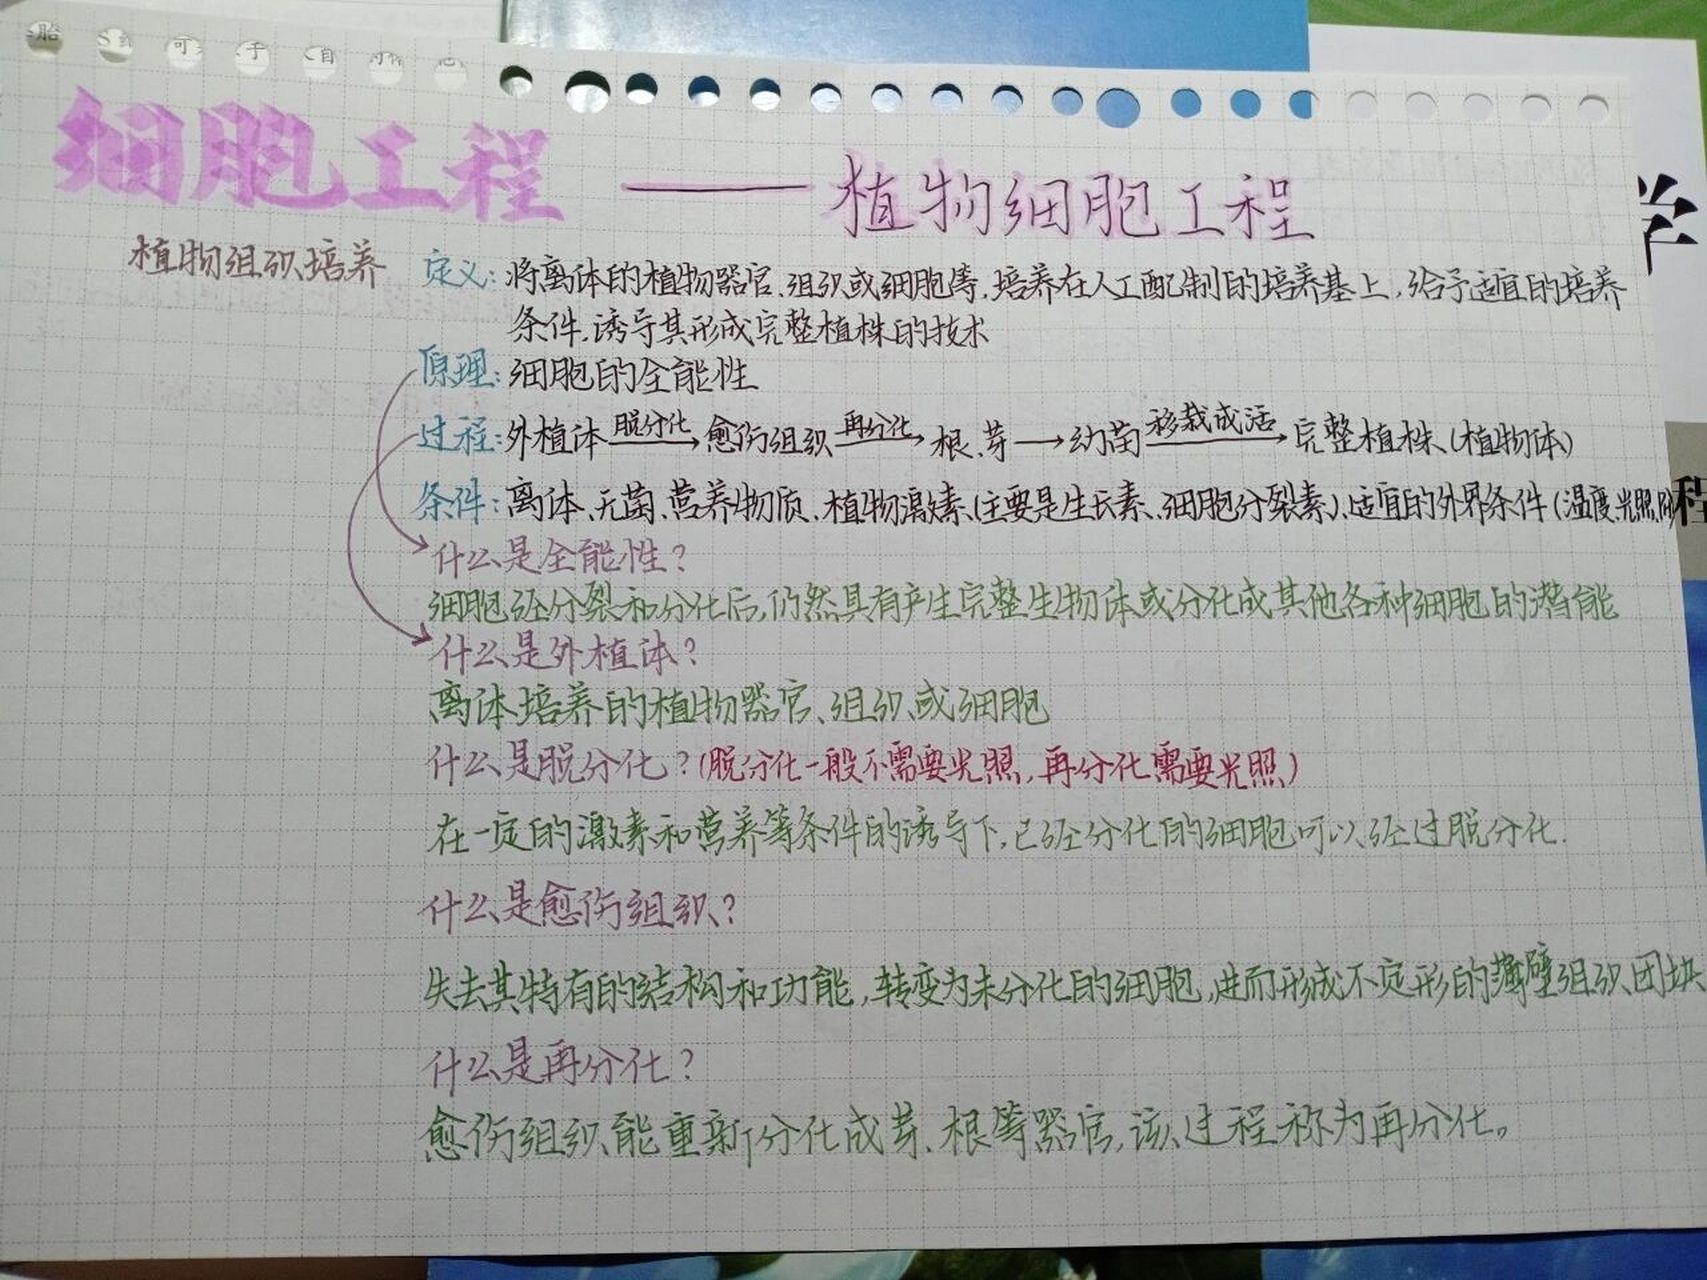 胎
可
于
自
细胞工程 —— 植物细胞工程
学
植物组织培养
定义:将离体的植物器官、组织或细胞等,培养在人工配制的培养基上,给予适宜的培养
条件,诱导其形成完整植株的技术
原理:细胞的全能性
过程:外植体 脱分化→ 愈伤组织 再分化→ 根、芽→幼苗 移栽成活→ 完整植株(植物体)
条件:离体、无菌、营养物质、植物激素(主要是生长素、细胞分裂素)、适宜的外界条件(温度、光照、
程
什么是全能性?
细胞经分裂和分化后,仍然具有产生完整生物体或分化成其他各种细胞的潜能
什么是外植体?
离体培养的植物器官、组织或细胞
什么是脱分化?(脱分化一般不需要光照,再分化需要光照)
在一定的激素和营养等条件的诱导下,已经分化的细胞可以经过脱分化.
什么是愈伤组织?
失去其特有的结构和功能,转变为未分化的细胞,进而形成不定形的薄壁组织团块
什么是再分化?
愈伤组织能重新分化成芽、根等器官,该过程称为再分化。